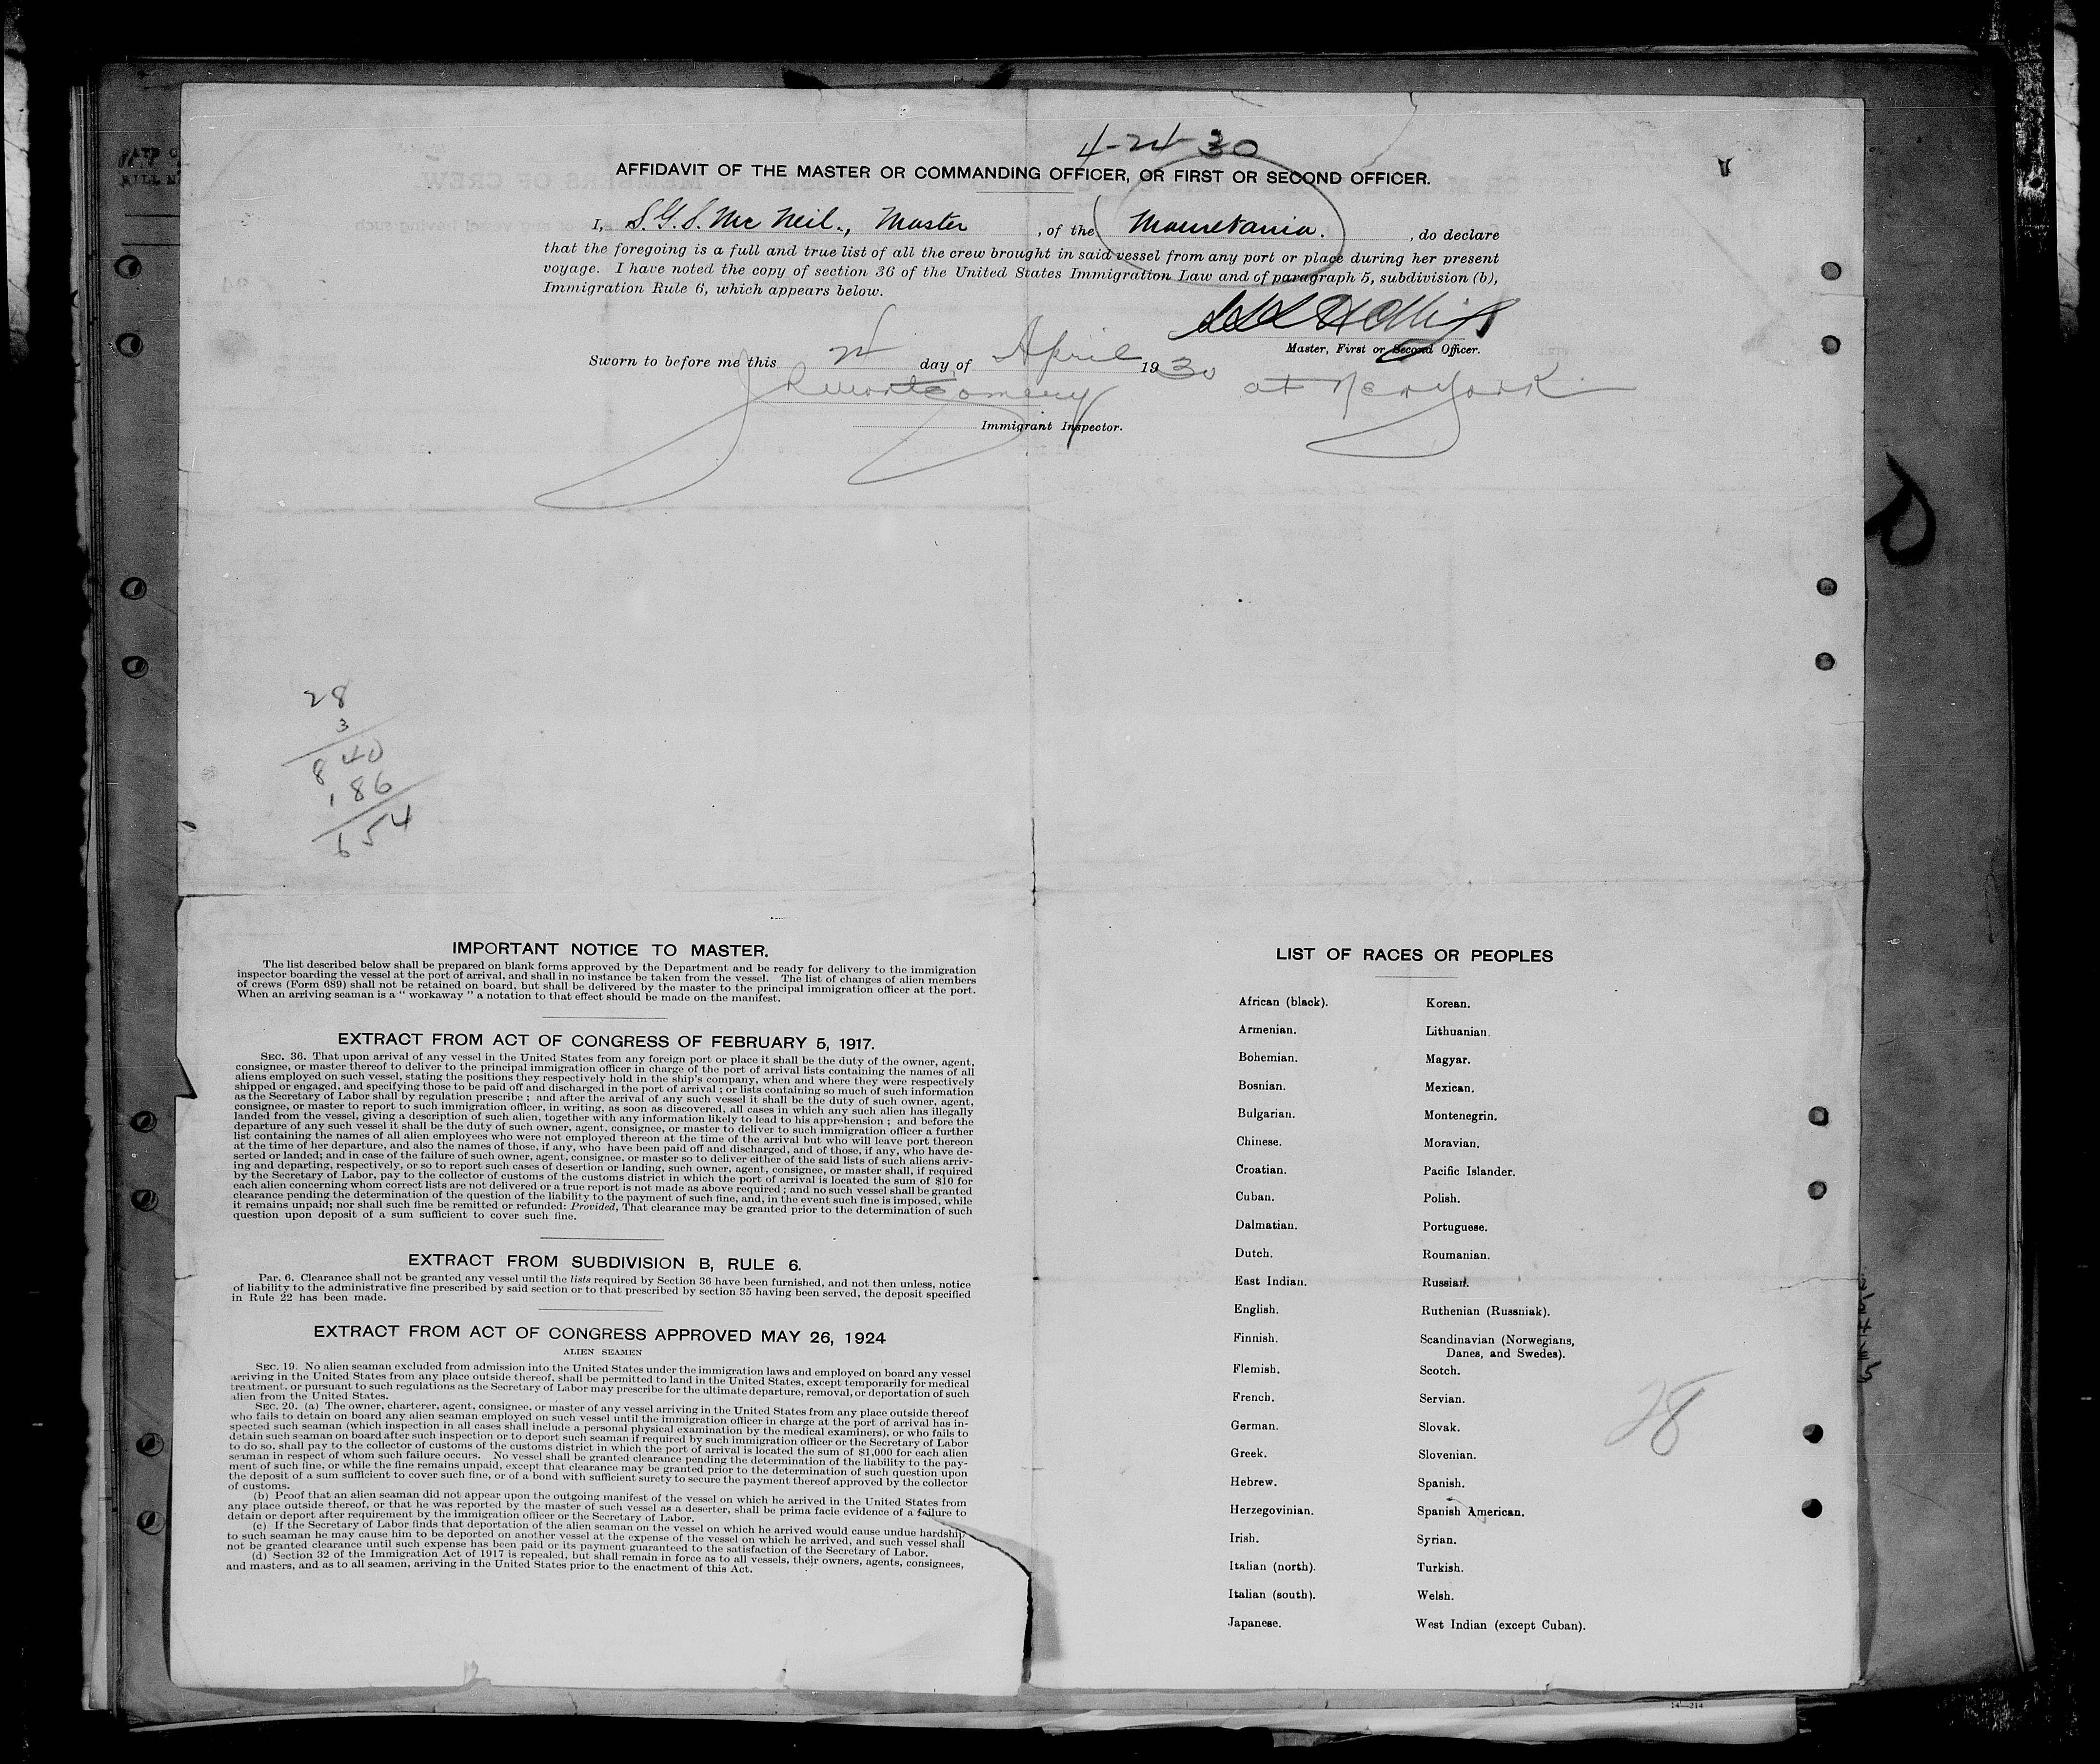 4-24-30
AFFIDAVIT OF THE MASTER OR COMMANDING OFFICER, OR FIRST OR SECOND OFFICER.
I, S.G.S. Mc Neil., Master , of the Mauretania. , do declare
that the foregoing is a full and true list of all the crew brought in said vessel from any port or place during her present
voyage. I have noted the copy of section 36 of the United States Immigration Law and of paragraph 5, subdivision (b),
Immigration Rule 6, which appears below.
Master, First or Second Officer.
Sworn to before me this 24 day of April 1930
Montgomery at New York
Immigrant Inspector.
28
3
840
186
654
IMPORTANT NOTICE TO MASTER.
The list described below shall be prepared on blank forms approved by the Department and be ready for delivery to the immigration
inspector boarding the vessel at the port of arrival, and shall in no instance be taken from the vessel. The list of changes of alien members
of crews (Form 689) shall not be retained on board, but shall be delivered by the master to the principal immigration officer at the port.
When an arriving seaman is a " workaway " a notation to that effect should be made on the manifest.
EXTRACT FROM ACT OF CONGRESS OF FEBRUARY 5, 1917.
SEC. 36. That upon arrival of any vessel in the United States from any foreign port or place it shall be the duty of the owner, agent,
consignee, or master thereof to deliver to the principal immigration officer in charge of the port of arrival lists containing the names of all
aliens employed on such vessel, stating the positions they respectively hold in the ship's company, when and where they were respectively
shipped or engaged, and specifying those to be paid off and discharged in the port of arrival ; or lists containing so much of such information
as the Secretary of Labor shall by regulation prescribe ; and after the arrival of any such vessel it shall be the duty of such owner, agent,
consignee, or master to report to such immigration officer, in writing, as soon as discovered, all cases in which any such alien has illegally
landed from the vessel, giving a description of such alien, together with any information likely to lead to his apprehension ; and before the
departure of any such vessel it shall be the duty of such owner, agent, consignee, or master to deliver to such immigration officer a further
list containing the names of all alien employees who were not employed thereon at the time of the arrival but who will leave port thereon
at the time of her departure, and also the names of those, if any, who have been paid off and discharged, and of those, if any, who have de-
serted or landed; and in case of the failure of such owner, agent, consignee, or master so to deliver either of the said lists of such aliens arriv-
ing and departing, respectively, or so to report such cases of desertion or landing, such owner, agent, consignee, or master shall, if required
by the Secretary of Labor, pay to the collector of customs of the customs district in which the port of arrival is located the sum of $10 for
each alien concerning whom correct lists are not delivered or a true report is not made as above required ; and no such vessel shall be granted
clearance pending the determination of the question of the liability to the payment of such fine, and, in the event such fine is imposed, while
it remains unpaid; nor shall such fine be remitted or refunded: Provided, That clearance may be granted prior to the determination of such
question upon deposit of a sum sufficient to cover such fine.
EXTRACT FROM SUBDIVISION B, RULE 6.
Par. 6. Clearance shall not be granted any vessel until the lists required by Section 36 have been furnished, and not then unless, notice
of liability to the administrative fine prescribed by said section or to that prescribed by section 35 having been served, the deposit specified
in Rule 22 has been made.
EXTRACT FROM ACT OF CONGRESS APPROVED MAY 26, 1924
ALIEN SEAMEN
SEC. 19. No alien seaman excluded from admission into the United States under the immigration laws and employed on board any vessel
arriving in the United States from any place outside thereof, shall be permitted to land in the United States, except temporarily for medical
treatment, or pursuant to such regulations as the Secretary of Labor may prescribe for the ultimate departure, removal, or deportation of such
alien from the United States.
SEC. 20. (a) The owner, charterer, agent, consignee, or master of any vessel arriving in the United States from any place outside thereof
who fails to detain on board any alien seaman employed on such vessel until the immigration officer in charge at the port of arrival has in-
spected such seaman (which inspection in all cases shall include a personal physical examination by the medical examiners), or who fails to
detain such seaman on board after such inspection or to deport such seaman if required by such immigration officer or the Secretary of Labor
to do so, shall pay to the collector of customs of the customs district in which the port of arrival is located the sum of $1,000 for each alien
seaman in respect of whom such failure occurs. No vessel shall be granted clearance pending the determination of the liability to the pay-
ment of such fine, or while the fine remains unpaid, except that clearance may be granted prior to the determination of such question upon
the deposit of a sum sufficient to cover such fine, or of a bond with sufficient surety to secure the payment thereof approved by the collector
of customs.
(b) Proof that an alien seaman did not appear upon the outgoing manifest of the vessel on which he arrived in the United States from
any place outside thereof, or that he was reported by the master of such vessel as a deserter, shall be prima facie evidence of a failure to
detain or deport after requirement by the immigration officer or the Secretary of Labor.
(c) If the Secretary of Labor finds that deportation of the alien seaman on the vessel on which he arrived would cause undue hardship
to such seaman he may cause him to be deported on another vessel at the expense of the vessel on which he arrived, and such vessel shall
not be granted clearance until such expense has been paid or its payment guaranteed to the satisfaction of the Secretary of Labor.
(d) Section 32 of the Immigration Act of 1917 is repealed, but shall remain in force as to all vessels, their owners, agents, consignees,
and masters, and as to all seamen, arriving in the United States prior to the enactment of this Act.
LIST OF RACES OR PEOPLES
African (black). Korean.
Armenian. Lithuanian.
Bohemian. Magyar.
Bosnian. Mexican.
Bulgarian. Montenegrin.
Chinese. Moravian.
Croatian. Pacific Islander.
Cuban. Polish.
Dalmatian. Portuguese.
Dutch. Roumanian.
East Indian. Russian.
English. Ruthenian (Russniak).
Finnish. Scandinavian (Norwegians,
Danes, and Swedes).
Flemish. Scotch.
French. Servian.
German. Slovak.
Greek. Slovenian.
Hebrew. Spanish.
Herzegovinian. Spanish American.
Irish. Syrian.
Italian (north). Turkish.
Italian (south). Welsh.
Japanese. West Indian (except Cuban).
28
14—214